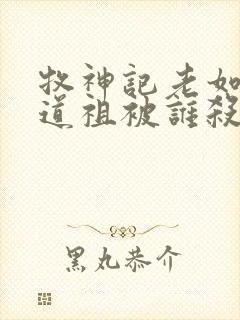 牧神記老如
道祖被誰殺
黑丸恭介